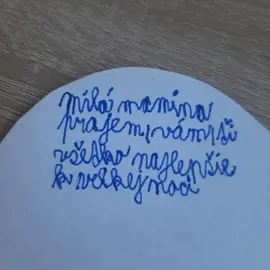 milá mamina
prajem vám
všetko najlepšie
k veľkej noci